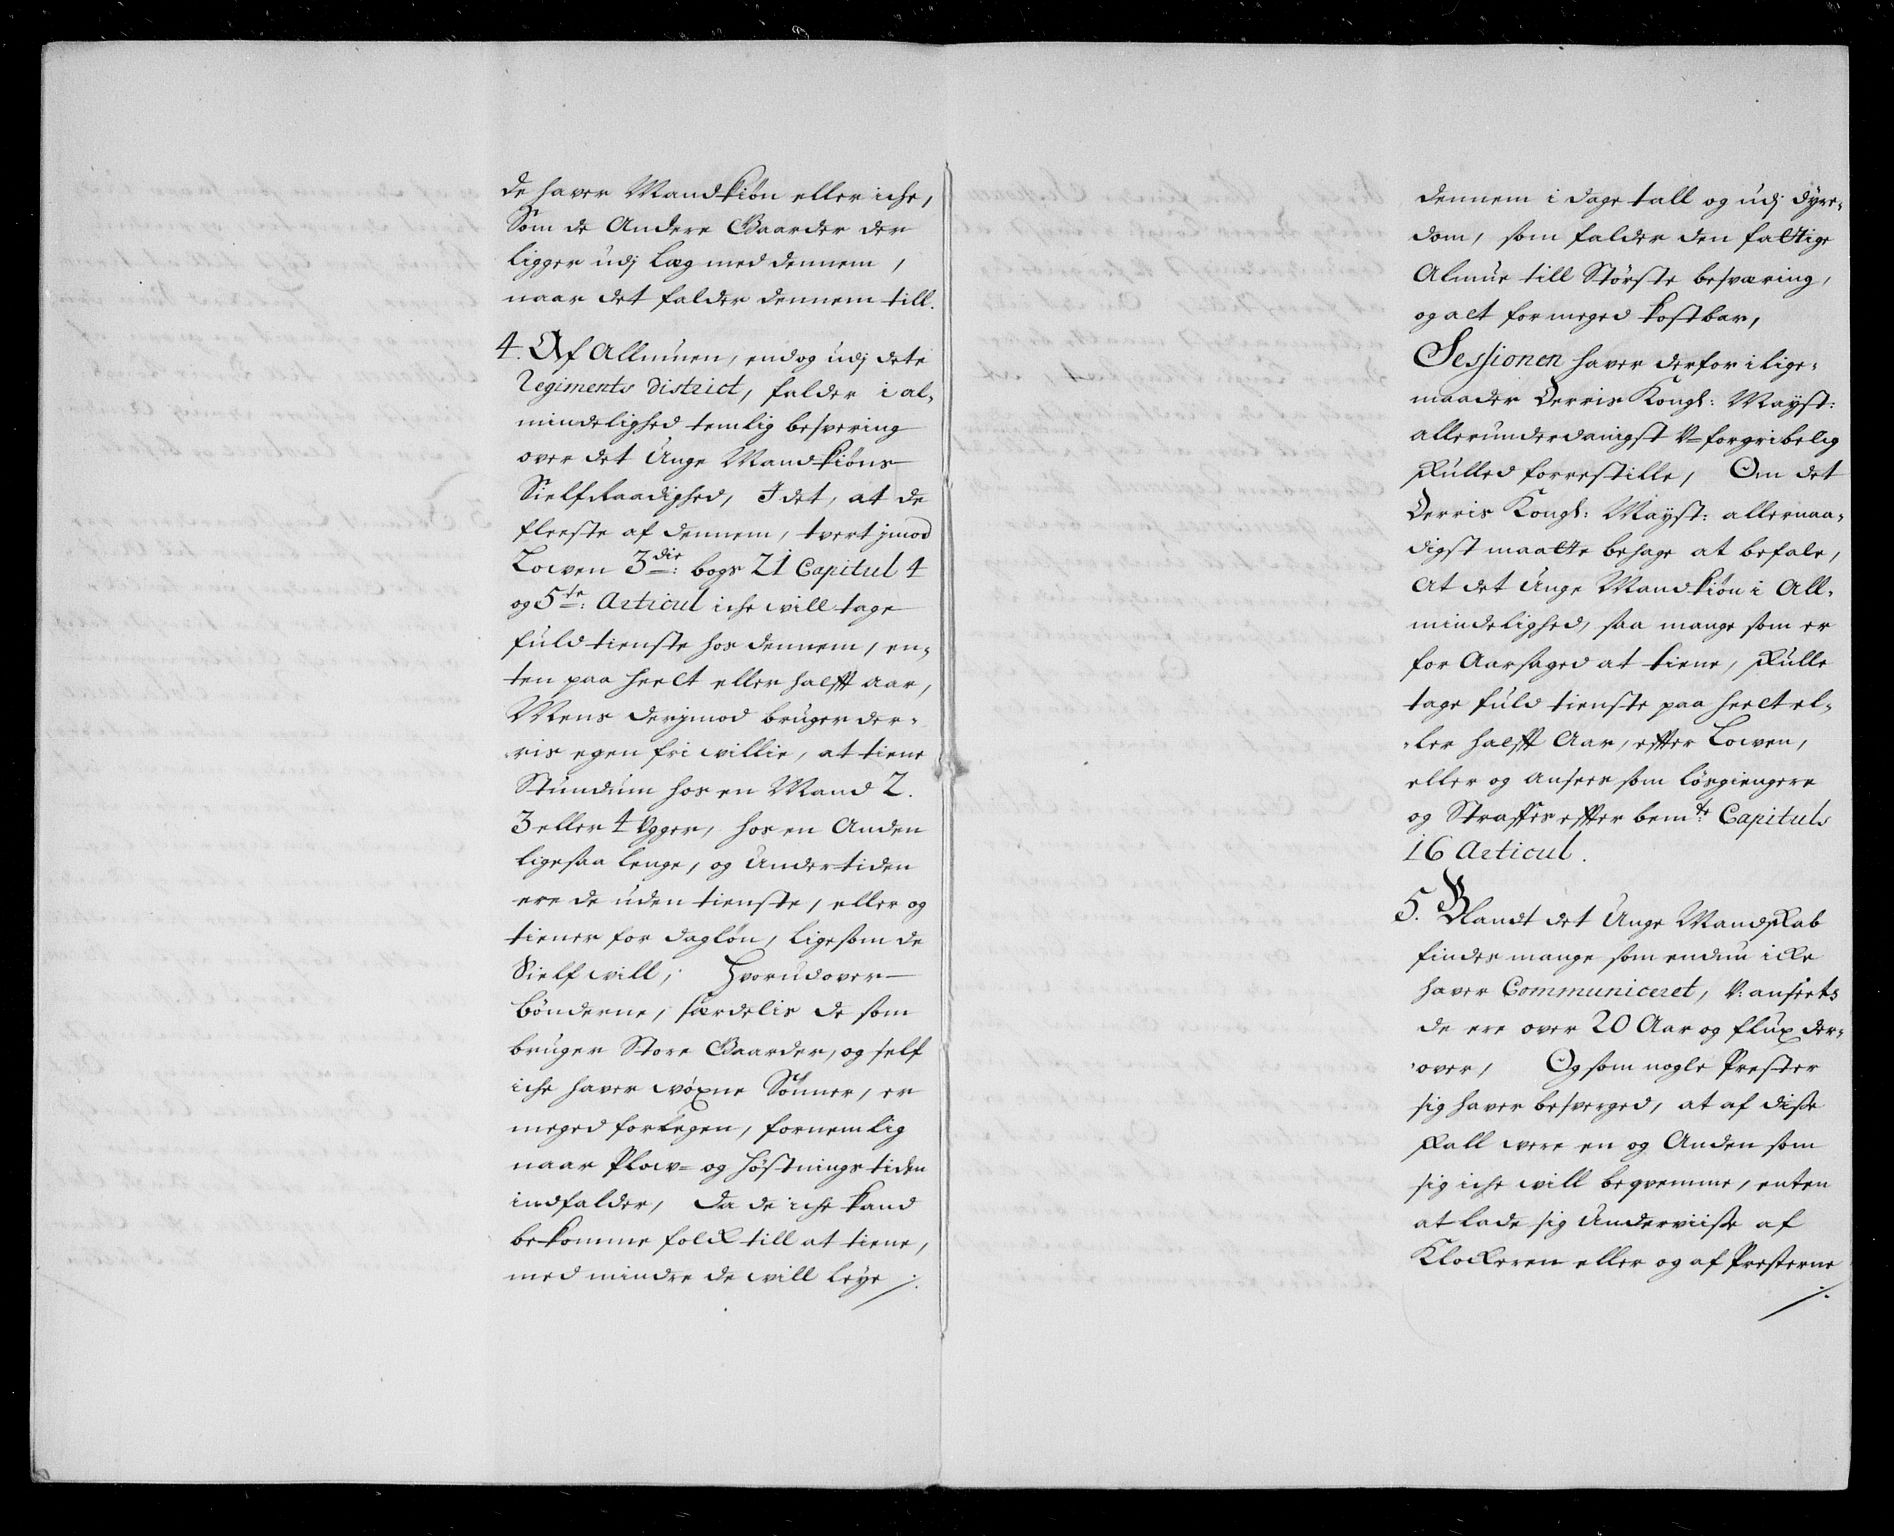 de haver Mandkiøn eller iche,
Som de Andere Gaarder der
ligger udj Læg med dennem,
naar det falder dennem till.
4. Af Allmuen, endog udj dete
Regiments District, falder i al-
mindelighed temlig besvering
over det Unge Mandkiøns
Sielfraadighed, I det, at de
fleeste af dennem, tvert jmod
Lowen 3die: bogs 21 Capitul 4
og 5te: Articul iche will tage
fuld tienste hos dennem, en-
ten paa heelt eller halfft aar,
Mens derjmod bruger der-
ris egen fri willie, at tiene
Stundum hos en Mand 2.
3 eller 4 Uger, hos en Anden
ligesaa lenge, og Undertiden
ere de uden tienste, eller og
tiener for dagløn, ligesom de
Sielf will, Hvorudover
bønderne, særdelis de som
bruger Store Gaarder, og self
iche haver vøxne Sønner, er
meged forlegen, fornemlig
naar Plow= og Høstnings tiden
indfalder, da de iche kand
bekomme folck till at tiene,
med mindre de will leye /.
dennem i dage tall og udj dyre-
dom, som falder den fattige
Almue till Største besværing,
og alt for meged kostbar,
Sessionen haver derfor i lige-
maader Derris Kongl: Mayst:
allerunderdanigst U=forgribelig
skulled forrestille, Om det
Derris Kongl: Mayst: allernaa-
digst maatte behage at befale,
At det Unge Mandkiøn i All-
mindelighed, saa mange som er
for Aarsaged at tiene, skulle
tage fuld tienste paa heelt el-
ler halfft Aar, effter Lowen,
eller og ansees som løsgiengere
og Straffes effter bemte: Capituls
16 Articul.
5. Blandt det Unge Mandskab
findes mange som endnu icke
haver Communiceret, U: anseets
de ere over 20 Aar og flux der-
over, Og som nogle Prester
sig haver besverged, at af disse
skall were en og Anden som
sig iche will beqvemme, enten
at lade sig Underviise af
Klockeren eller og af Presterne
/.